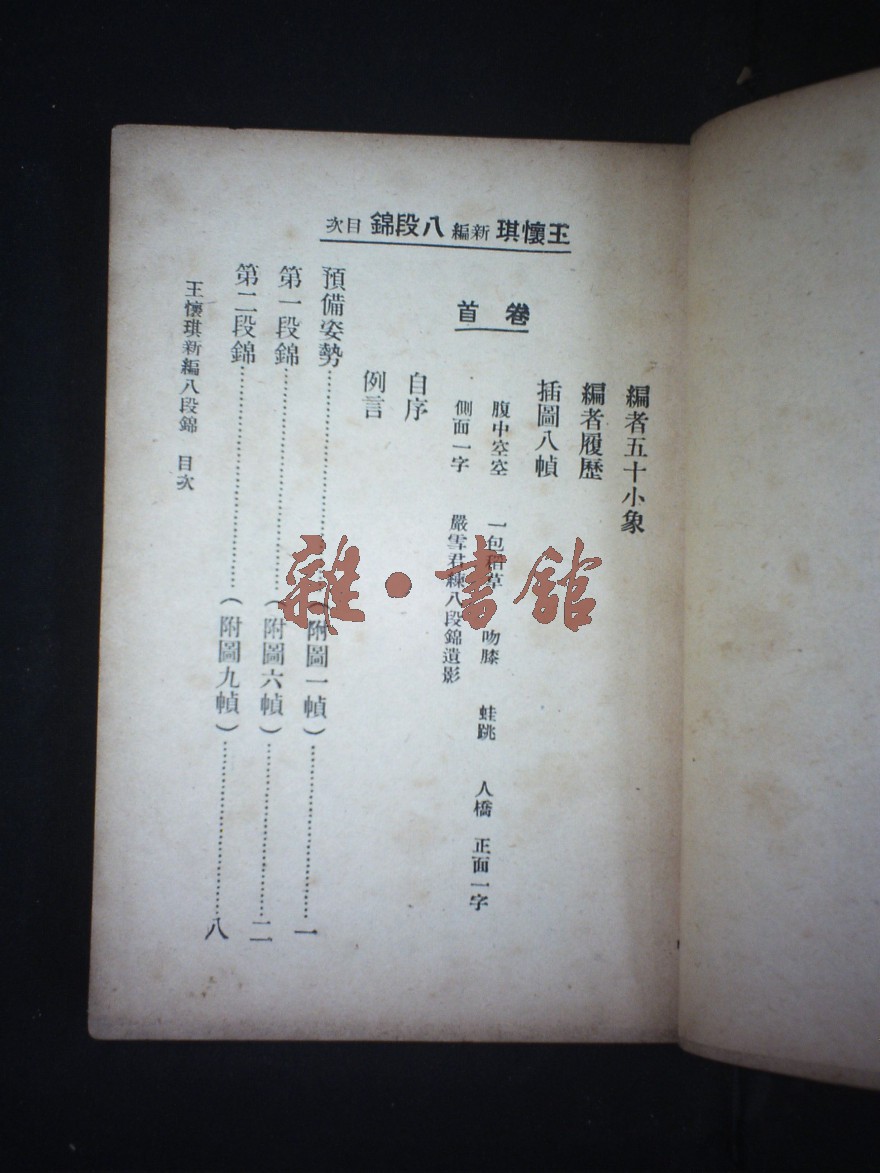 王懷琪新編八段錦目次
卷首
編者五十小象
編者履歷
插圖八幀
腹中空空 一包稻草 吻膝 蛙跳 人橋 正面一字
側面一字 嚴雪君練八段錦遺影
自序
例言
預備姿勢……(附圖一幀)……一
第一段錦……(附圖六幀)……二
第二段錦……(附圖九幀)……八
王懷琪新編八段錦 目次
雜·書館